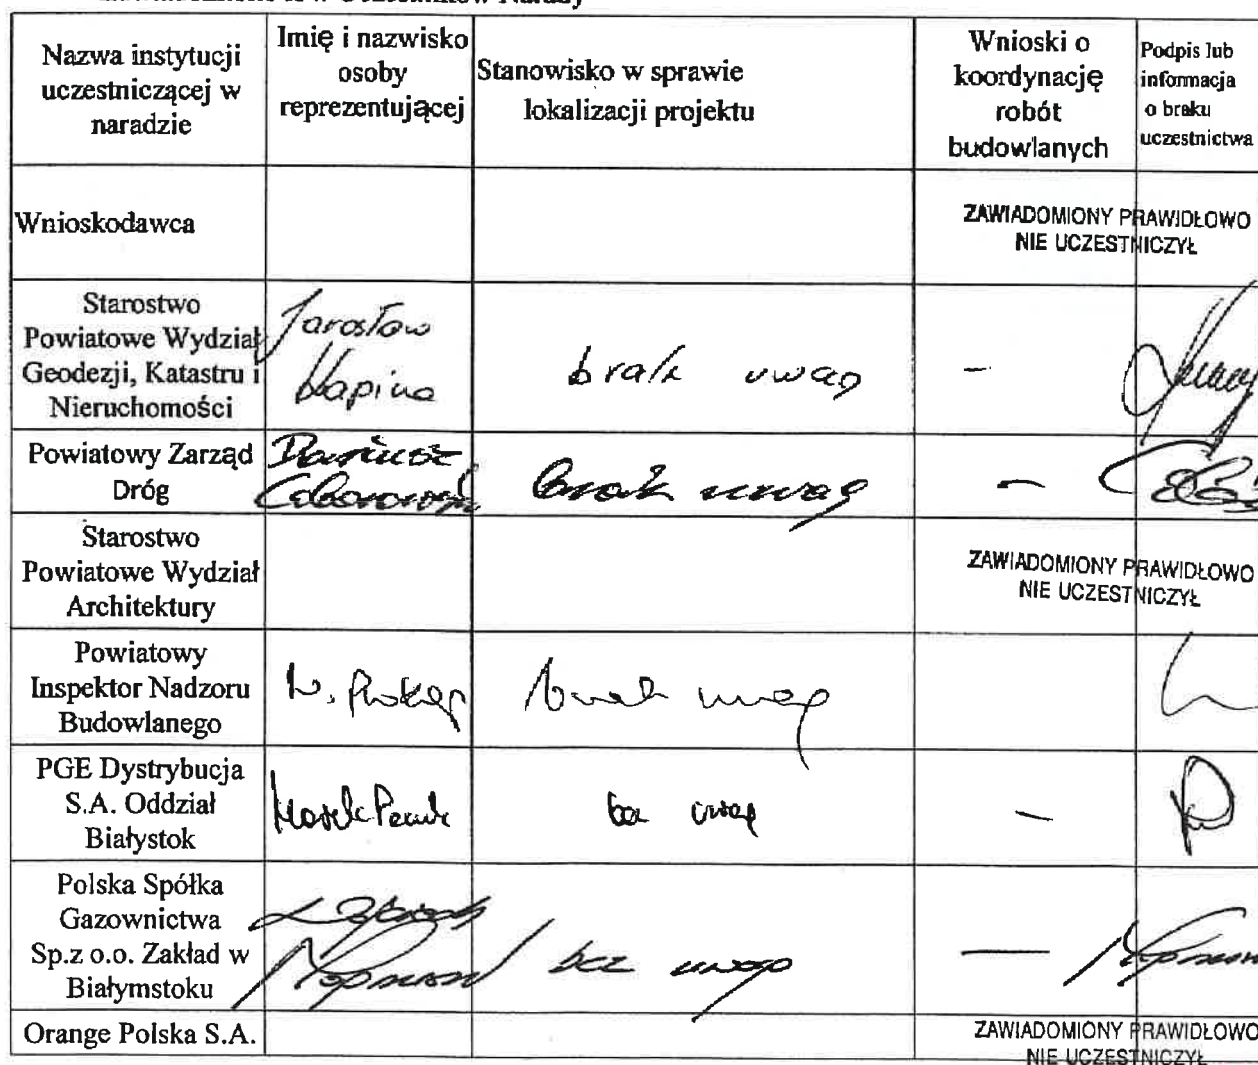 Nazwa instytucji
uczestniczącej w
naradzie
Imię i nazwisko
osoby
reprezentującej
Stanowisko w sprawie
lokalizacji projektu
Wnioski o
koordynację
robót
budowlanych
Podpis lub
informacja
o braku
uczestnictwa
Wnioskodawca
ZAWIADOMIONY PRAWIDŁOWO
NIE UCZESTNICZYŁ
Starostwo
Powiatowe Wydział
Geodezji, Katastru i
Nieruchomości
Jarosław
brak uwag
-
Powiatowy Zarząd
Dróg
Dariusz
brak uwag
-
Starostwo
Powiatowe Wydział
Architektury
ZAWIADOMIONY PRAWIDŁOWO
NIE UCZESTNICZYŁ
Powiatowy
Inspektor Nadzoru
Budowlanego
brak uwag
PGE Dystrybucja
S.A. Oddział
Białystok
Marek
bez uwag
-
Polska Spółka
Gazownictwa
Sp.z o.o. Zakład w
Białymstoku
bez uwag
-
Orange Polska S.A.
ZAWIADOMIONY PRAWIDŁOWO
NIE UCZESTNICZYŁ